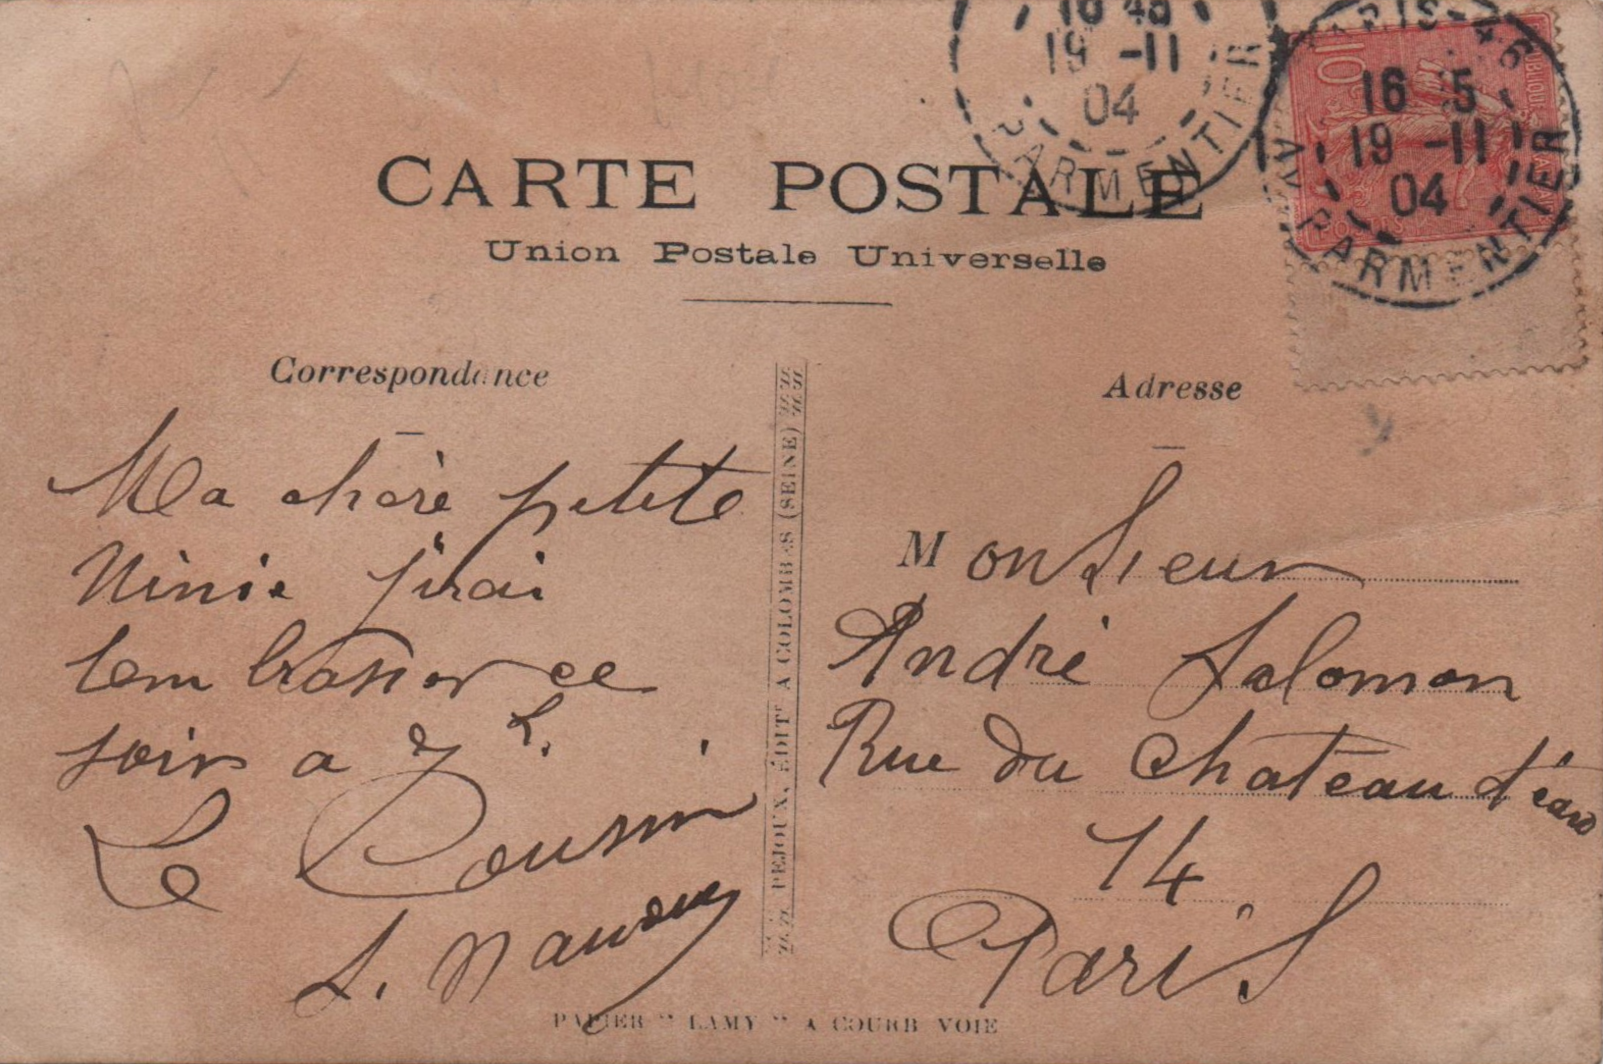 16 45
19 -11
04
PARMENTIER
PARIS-46
16 5
19 -11
04
AV. PARMENTIER
10
CARTE POSTALE
Union Postale Universelle
Correspondance
Ma chère petite
Ninie j'irai
tembrasser ce
soir a 7 h.
Le Cousin
PEJOUX, ÉDITr A COLOMBES (SEINE)
Adresse
Monsieur
André Salomon
Rue du Chateau d'eau
14
Paris
PAPIER " LAMY " A COURBEVOIE